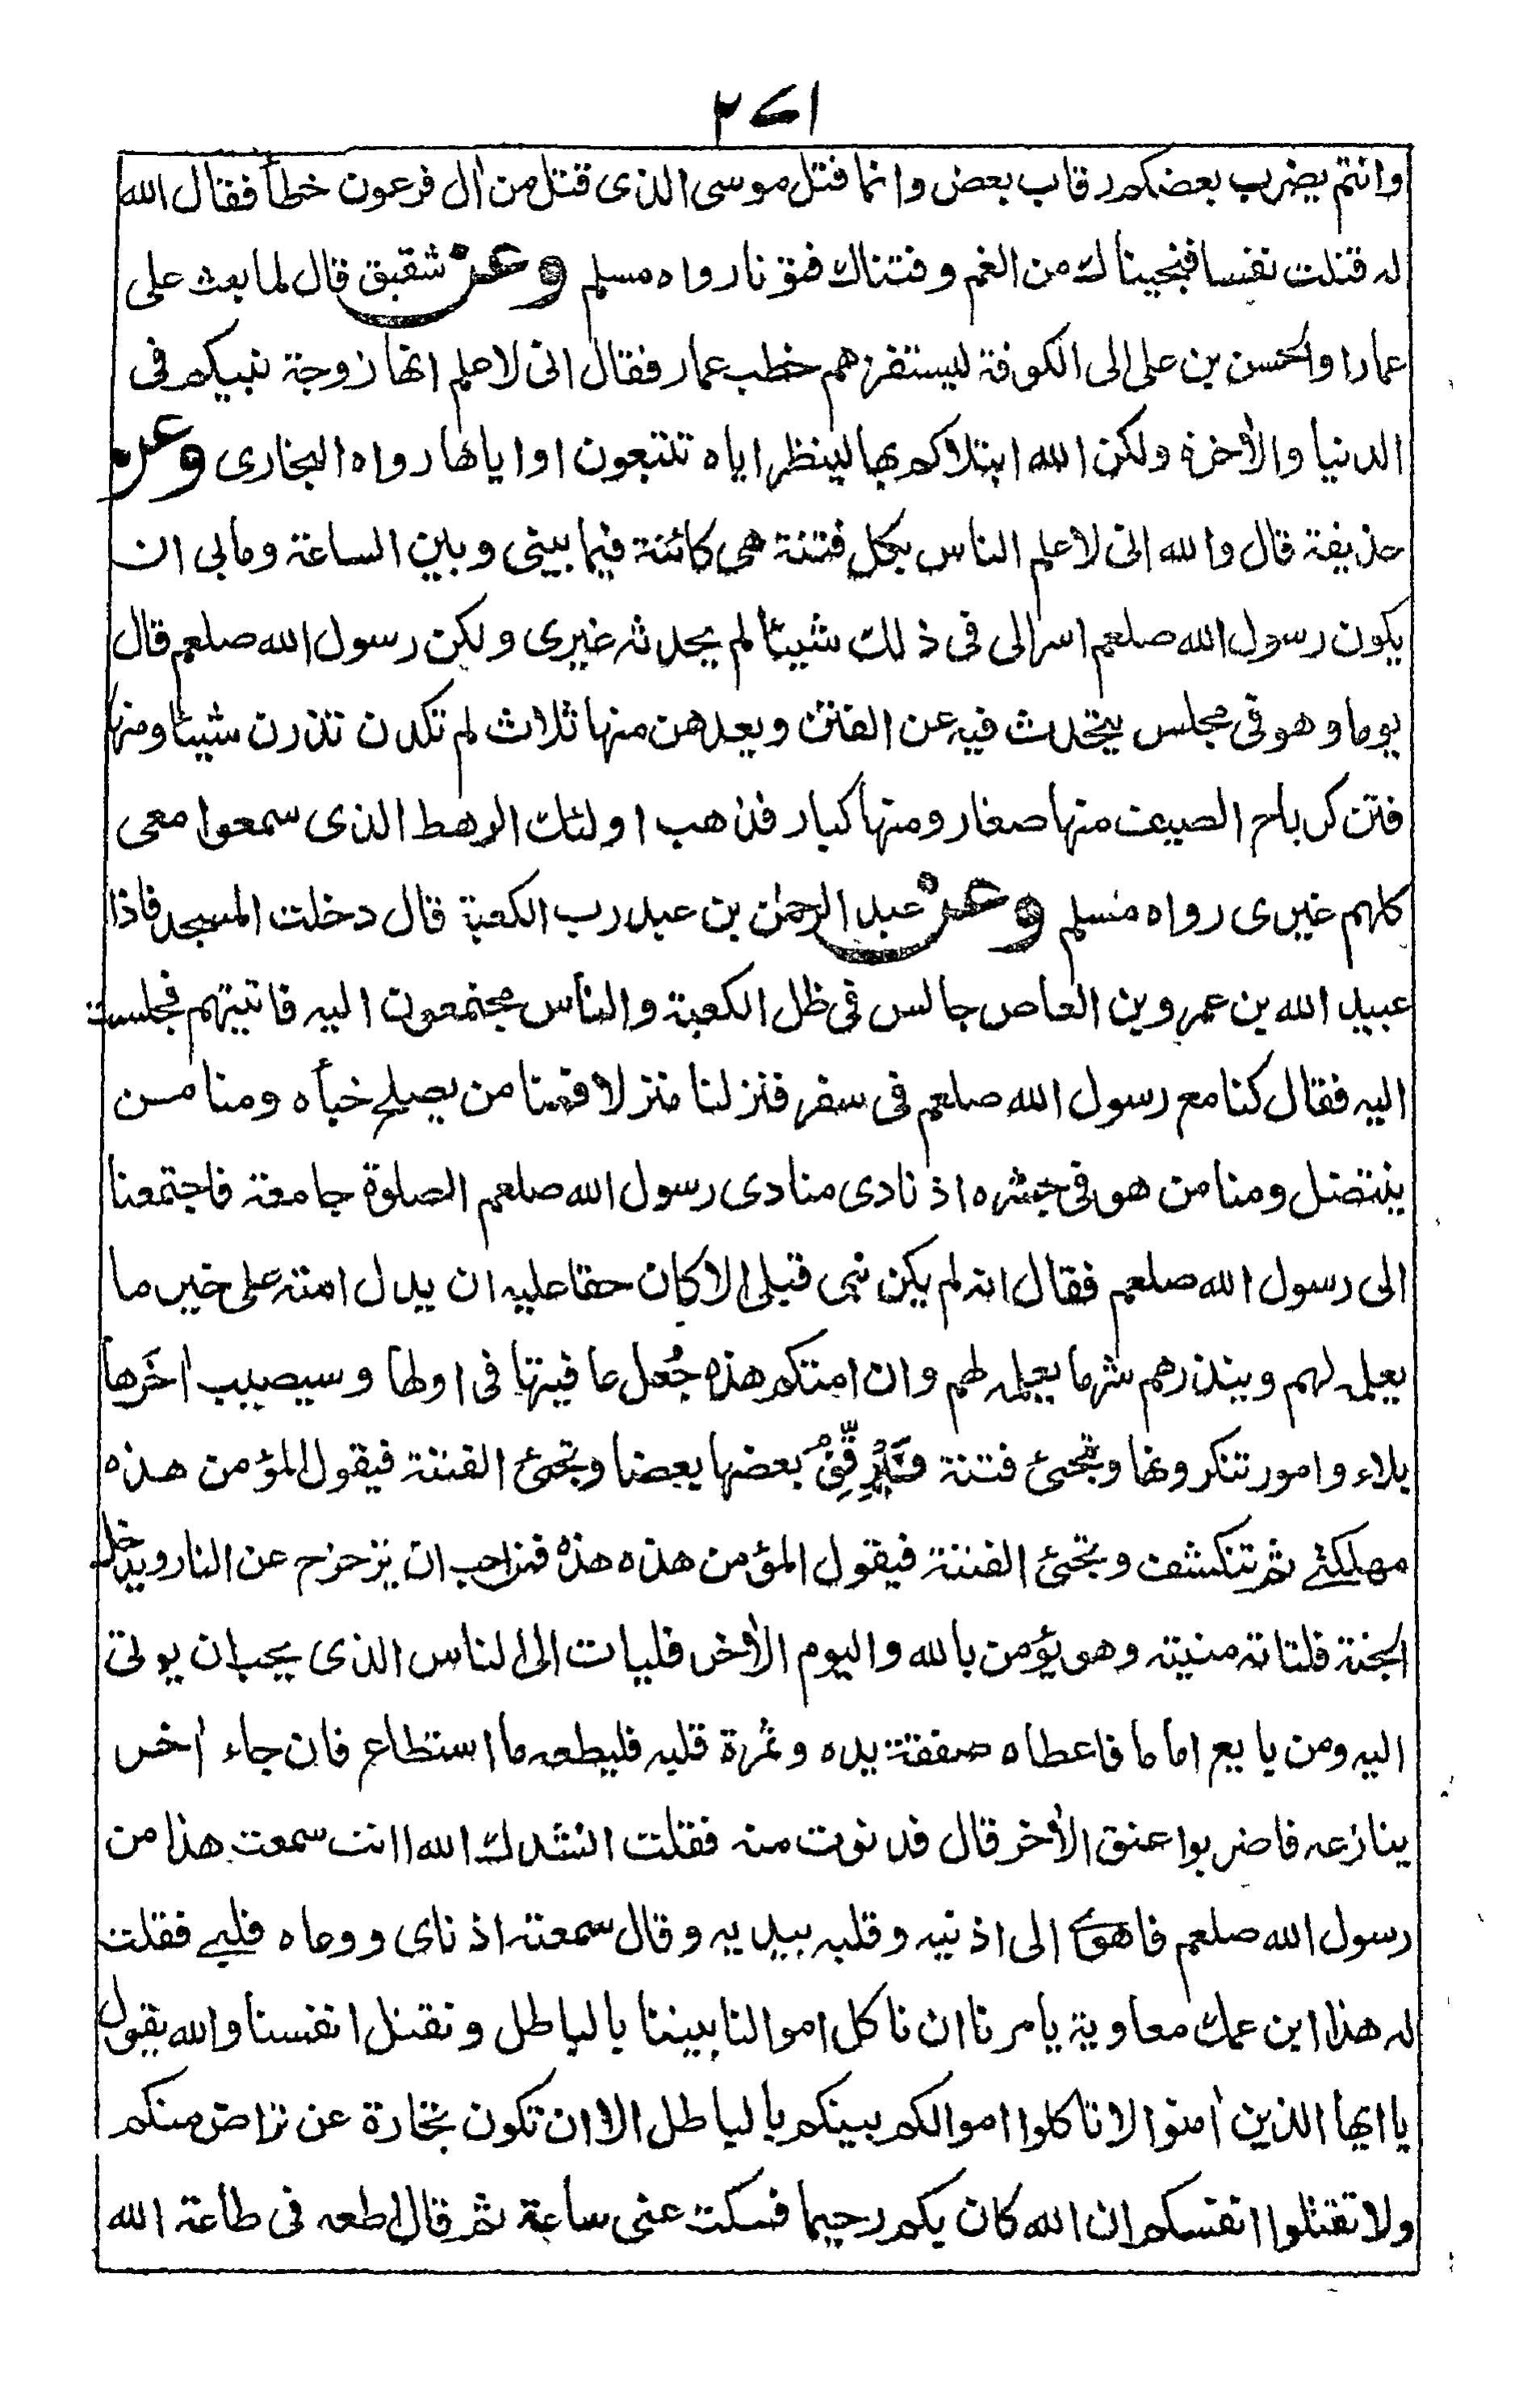 ٢٧١
وانتم يضرب بعضكم رقاب بعض وانما قتل موسى الذى قتل من اٰل فرعون خطأ فقال الله
له قتلت نفسا فنجيناك من الغم وفتناك فتونا رواه مسلم وعن شقيق قال لما بعث على
عمارا والحسن بن على الى الكوفة ليستفزهم خطب عمار فقال انى لاعلم انها زوجة نبيكم فى
الدنيا والاٰخرة ولكن الله ابتلاكم بها لينظر اياه تتبعون او اياها رواه البخارى وعن
حذيفة قال والله انى لاعلم الناس بكل فتنة هى كائنة فيما بينى وبين الساعة ومابى ان
يكون رسول الله صلعم اسر الى فى ذلك شيئا لم يحدثه غيرى ولكن رسول الله صلعم قال
يوما وهو فى مجلس يتحدث فيه عن الفتن ويعدهن منها ثلاث لم تكدن تذرن شيئا ومنها
فتن كرياح الصيف منها صغار ومنها كبار فذهب اولئك الرهط الذى سمعوا معى
كلهم غيرى رواه مسلم وعن عبد الرحمٰن بن عبد رب الكعبة قال دخلت المسجد فاذا
عبيد الله بن عمرو بن العاص جالس فى ظل الكعبة والناس مجتمعون اليه فاتيتهم فجلست
اليه فقال كنا مع رسول الله صلعم فى سفر فنزلنا منزلا فمنا من يصلح خبأه ومنا من
ينتضل ومنا من هو فى جشره اذ نادى منادى رسول الله صلعم الصلوة جامعة فاجتمعنا
الى رسول الله صلعم فقال انه لم يكن نبى قبلى الا كان حقا عليه ان يدل امته على خير ما
يعلمه لهم وينذرهم شر ما يعلمه لهم وان امتكم هذه جُعل عافيتها فى اولها وسيصيب اٰخَرها
بلاء وامور تنكرونها وتجئ فتنة فَيُرَقِّقُ بعضها بعضا وتجئ الفتنة فيقول المؤمن هذه
مهلكتى ثم تنكشف وتجئ الفتنة فيقول المؤمن هذه هذه فمن احب ان يزحزح عن النار ويدخل
الجنة فلتاته منيته وهو يؤمن بالله واليوم الاٰخر فليات الى الناس الذى يحب ان يوتى
اليه ومن بايع اماما فاعطاه صفقة يده وثمرة قلبه فليطعه ما استطاع فان جاء اٰخر
ينازعه فاضربوا عنق الاٰخر قال فدنوت منه فقلت انشدك الله اانت سمعت هذا من
رسول الله صلعم فاهوى الى اذنيه وقلبه بيديه وقال سمعته اذناى ووعاه قلبى فقلت
له هذا ابن عمك معاوية يامرنا ان ناكل اموالنا بيننا بالباطل ونقتل انفسنا والله يقول
يا ايها الذين اٰمنوا لا تاكلوا اموالكم بينكم بالباطل الا ان تكون تجارة عن تراض منكم
ولا تقتلوا انفسكم ان الله كان بكم رحيما فسكت عنى ساعة ثم قال اطعه فى طاعة الله